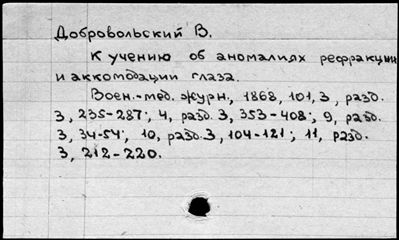 Добровольский В.
К учению об аномалиях рефракции
и аккомодации глаза.
Воен.-мед. журн., 1868, 101, 3, разд.
3, 235-287; 4, разд. 3, 353-408; 9, разд.
3, 34-54; 10, разд. 3, 104-121; 11, разд.
3, 212-220.